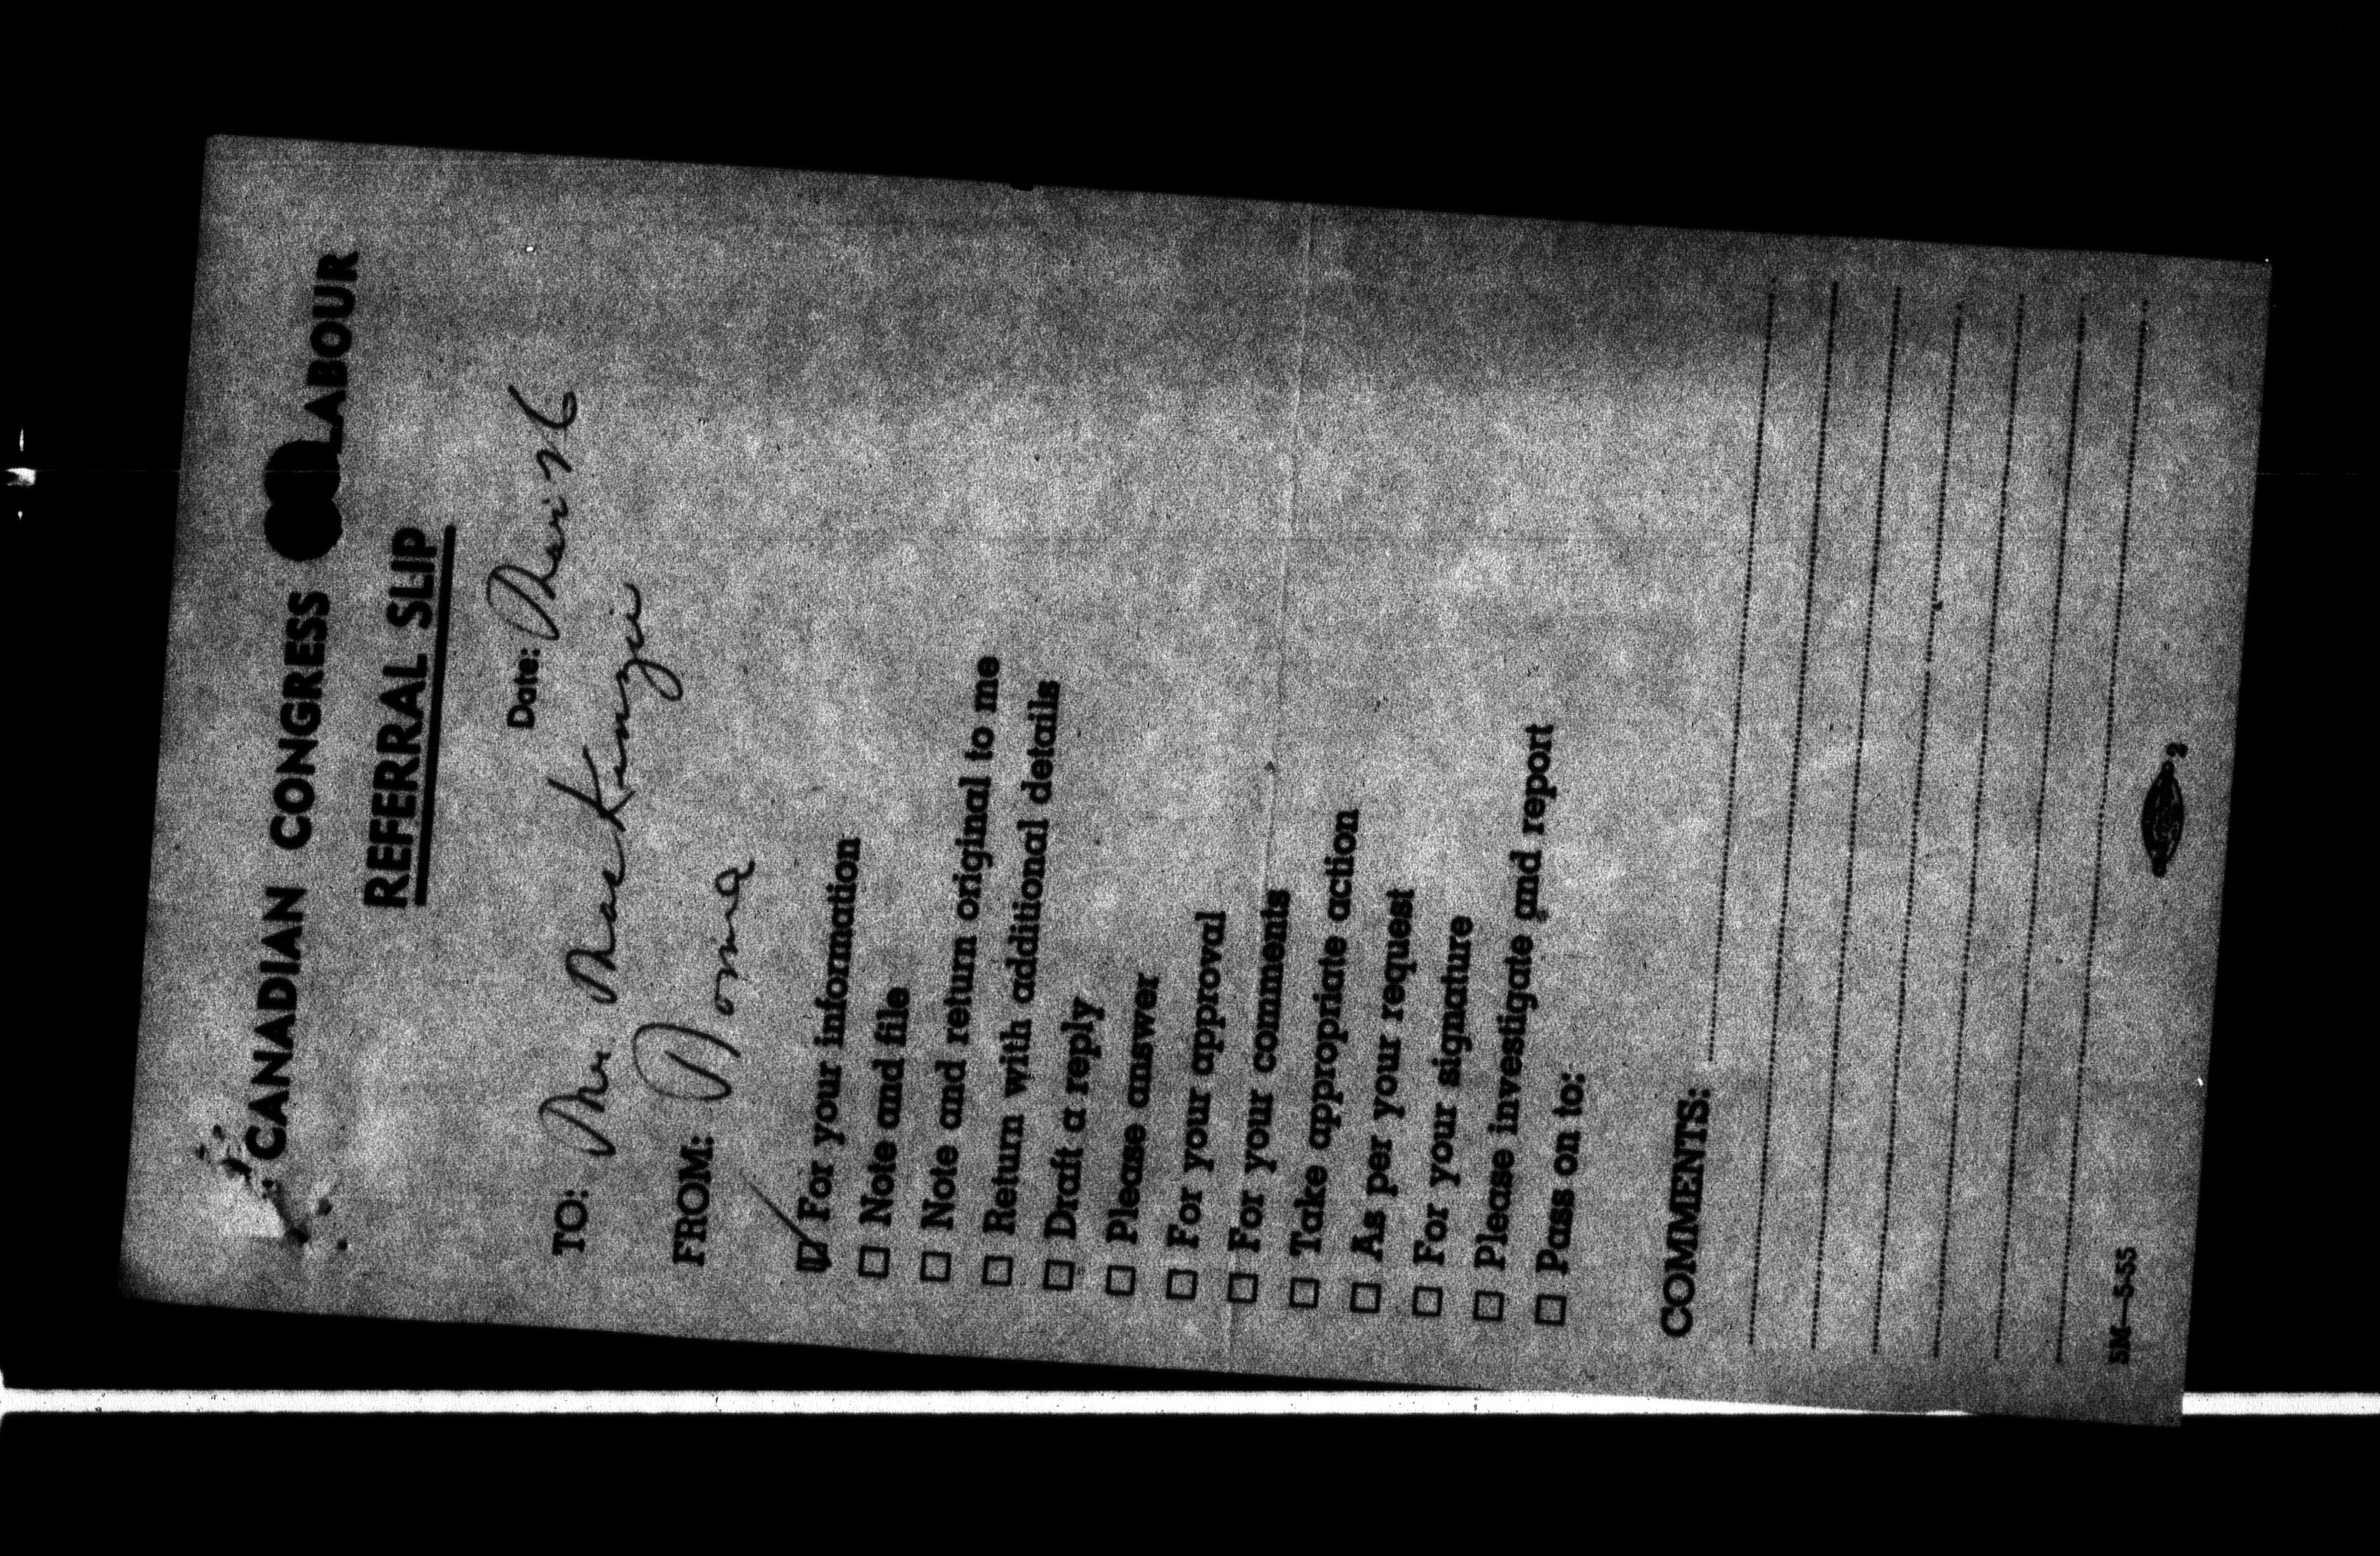 CANADIAN CONGRESS LABOUR
REFERRAL SLIP
Date:
TO: Mr MacKenzie
FROM: Norma
For your information
Note and file
Note and return original to me
Return with additional details
Draft a reply
Please answer
For your approval
For your comments
Take appropriate action
As per your request
For your signature
Please investigate and report
Pass on to:
COMMENTS:
5M—5-55
2